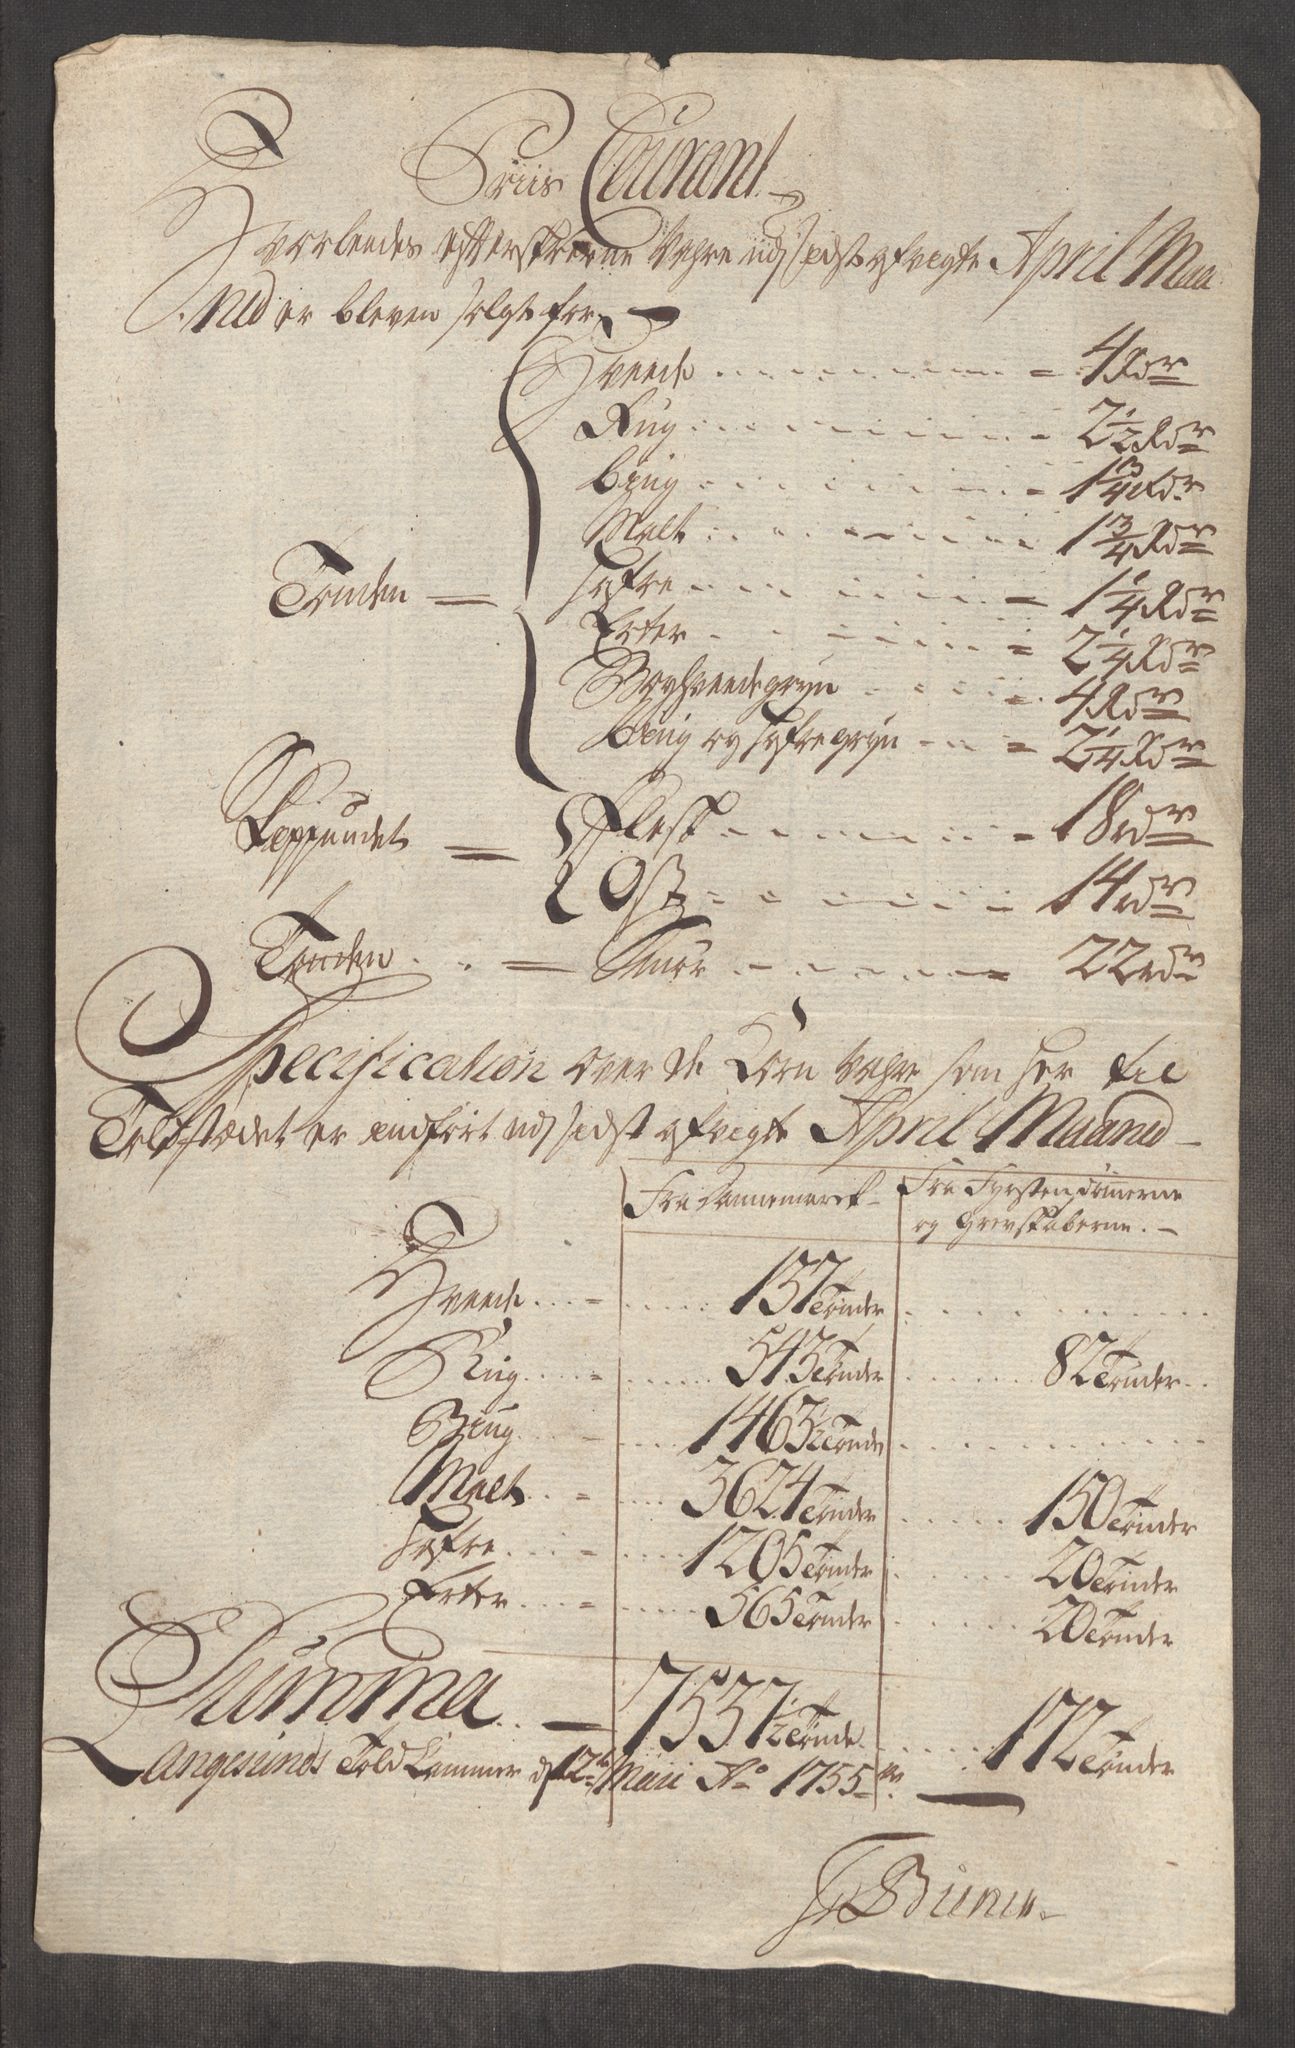 Priis Courant
Hvorledes efterskrevne Vahre udj sidst afvegte April Maa
ned er bleven solgt for
Hvede 4 Rdr
Rug 2 1/2 Rdr
Bÿug 1 3/4 Rdr
Malt 1 3/4 Rdr
Tønden = Hafre 1 1/4 Rdr
Erter 2 1/4 Rdr
Boghvedegryn 4 Rdr
Bÿug og Hafregryn 2 1/4 Rdr
Skeppundet = Flesk 18 rdr
Ost 14 rdr
Tønden = Smør 22 rdr
Specification over de Korn Vahre som her til
Toldstædet er indført udj sidst afvegte April Maaned
Fra Dannemarck Fra Fyrstendømerne
og Grevskaberne.
Hvede 137 Tønder
Rug 543 Tønder 82 Tønder
Biug 1463 1/2 Tønde
Malt 3624 Tønder 150 Tønder
Hafre 1205 Tønder 20 Tønder
Erter 565 Tønder 20 Tønder
Summa 7537 1/2 Tønde 172 Tønder
Langesunds Told Kammer d 12te Maii Ao 1755